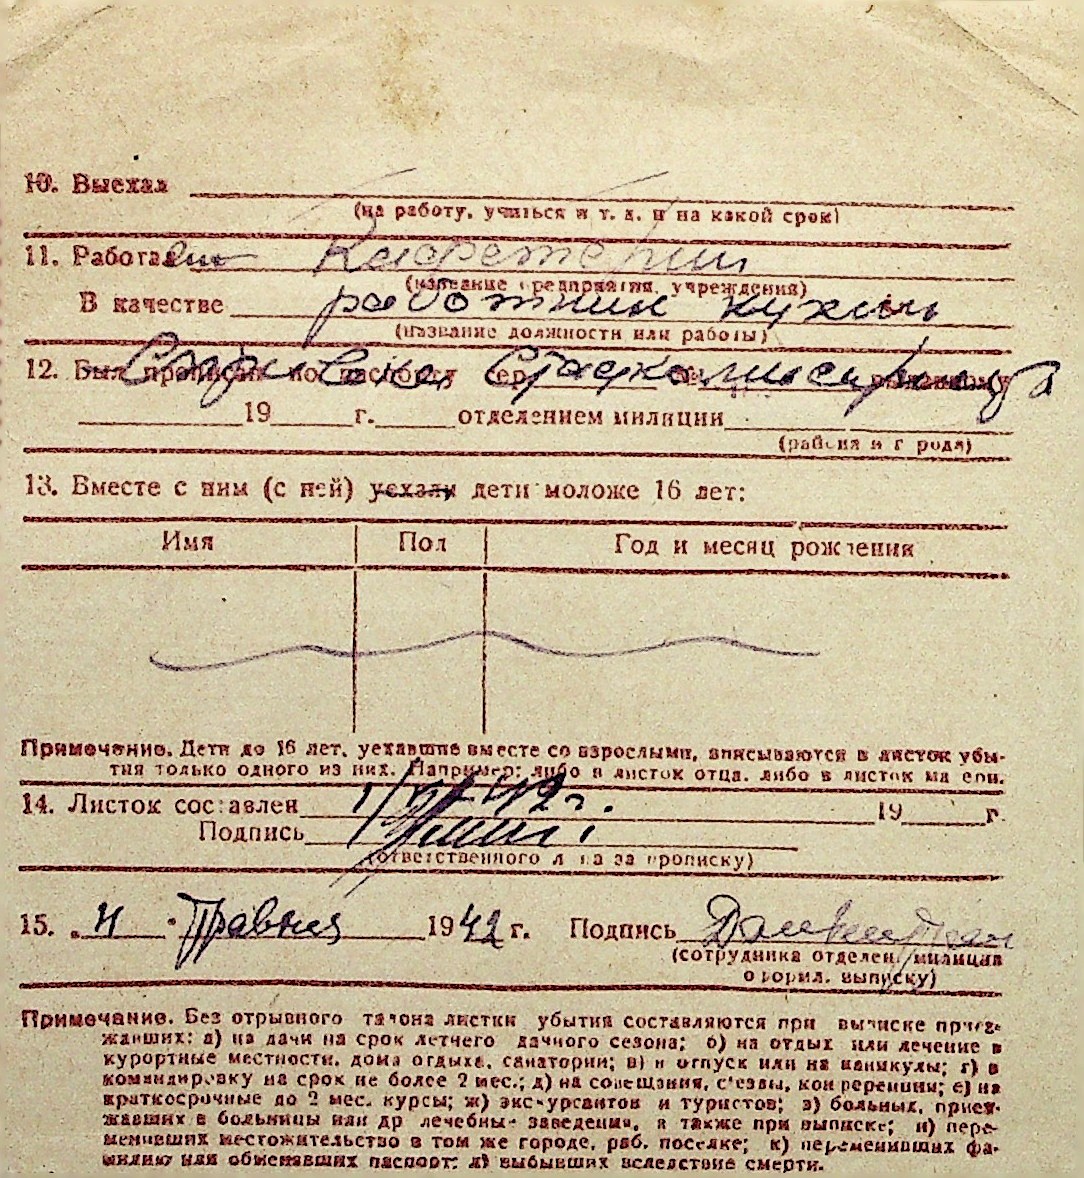 10. Выехал
(на работу, учиться и т. д. и на какой срок)
11. Работал Кафетерии
(название предприятия, учреждения)
В качестве работник кухни
(название должности или работы)
12. Был прописан по паспорту серия №
19 г. отделением милиции
(района и города)
13. Вместе с ним (с ней) уехали дети моложе 16 лет:
Имя Пол Год и месяц рождения
Примечание. Дети до 16 лет, уехавшие вместе со взрослыми, вписываются в листок убы-
тия только одного из них. Например: либо в листок отца, либо в листок матери.
14. Листок составлен 1/V-42 г. 19 г.
Подпись
(ответственного лица за прописку)
15. „11" Травня 1942 г. Подпись
(сотрудника отделен. милиции
оформл. выписку)
Примечание. Без отрывного талона листки убытия составляются при выписке приез-
жавших: а) на дачи на срок летнего дачного сезона; б) на отдых или лечение в
курортные местности, дома отдыха, санатории; в) в отпуск или на каникулы; г) в
командировку на срок не более 2 мес.; д) на совещания, с'езды, конференции; е) на
краткосрочные до 2 мес. курсы; ж) экскурсантов и туристов; з) больных, приез-
жавших в больницы или др лечебные заведения, а также при выписке; и) пере-
менивших местожительство в том же городе, раб. поселке; к) переменивших фа-
милию или обменявших паспорт; л) выбывших вследствие смерти.